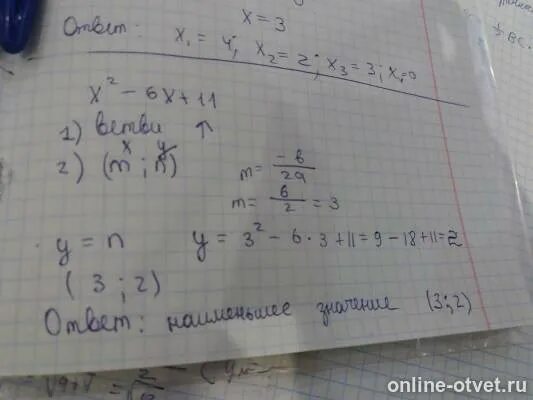 x = 3
Ответ: x₁ = 4; x₂ = 2; x₃ = 3; x₄=0
x² - 6x + 11
1) ветви ↑
x y
2) (m ; n)
m = -b/2a
m = 6/2 = 3
y = n y = 3² - 6 · 3 + 11 = 9 - 18 + 11 = 2
(3 ; 2)
Ответ: наименьшее значение (3;2)
online-otvet.ru